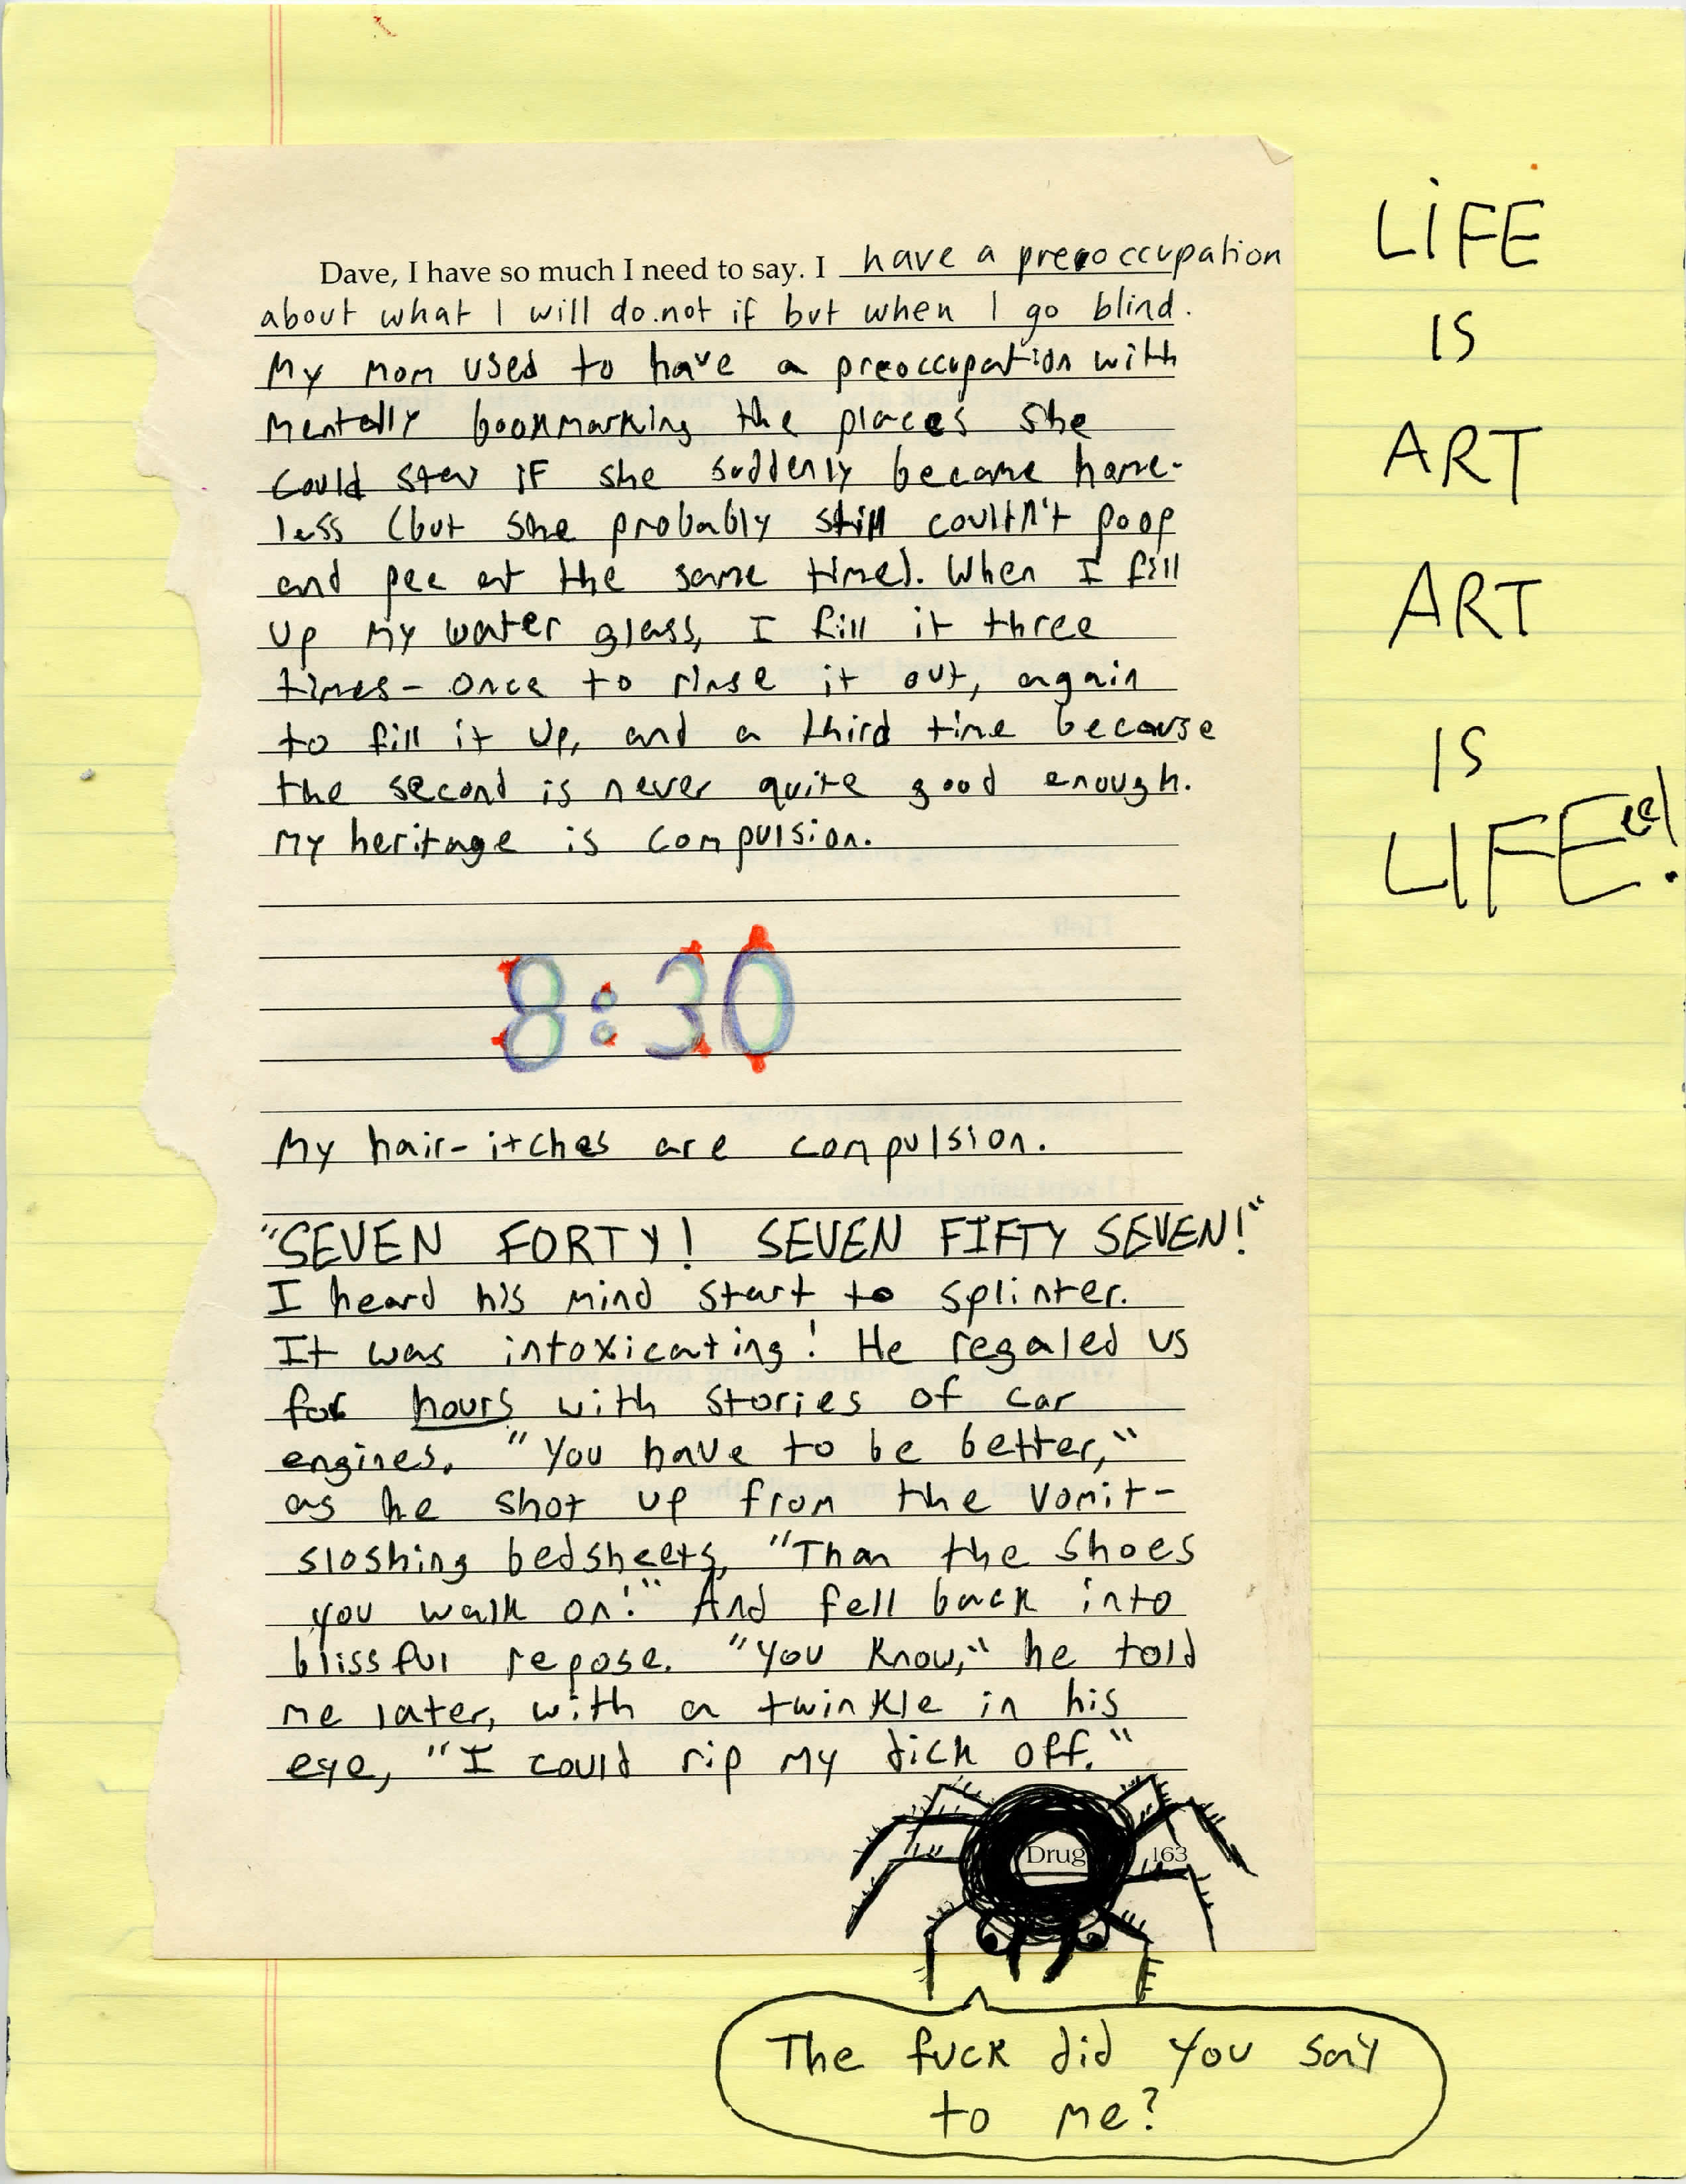 Dave, I have so much I need to say. I have a preoccupation
about what I will do.not if but when I go blind.
My mom used to have a preoccupation with
mentally bookmarking the places she
could stay if she suddenly became home-
less (but she probably still couldn't poop
and pee at the same time). When I fill
up my water glass, I fill it three
times- once to rinse it out, again
to fill it up, and a third time because
the second is never quite good enough.
My heritage is compulsion.
8:30
My hair-itches are compulsion.
"SEVEN FORTY! SEVEN FIFTY SEVEN!"
I heard his mind start to splinter.
It was intoxicating! He regaled us
for hours with stories of car
engines. "You have to be better,"
as he shot up from the vomit-
sloshing bedsheets, "Than the shoes
you walk on!" And fell back into
blissful repose. "You know," he told
me later, with a twinkle in his
eye, "I could rip my dick off."
Drug 163
The fuck did you say
to me?
LiFE
IS
ART
ART
IS
LIFEee!